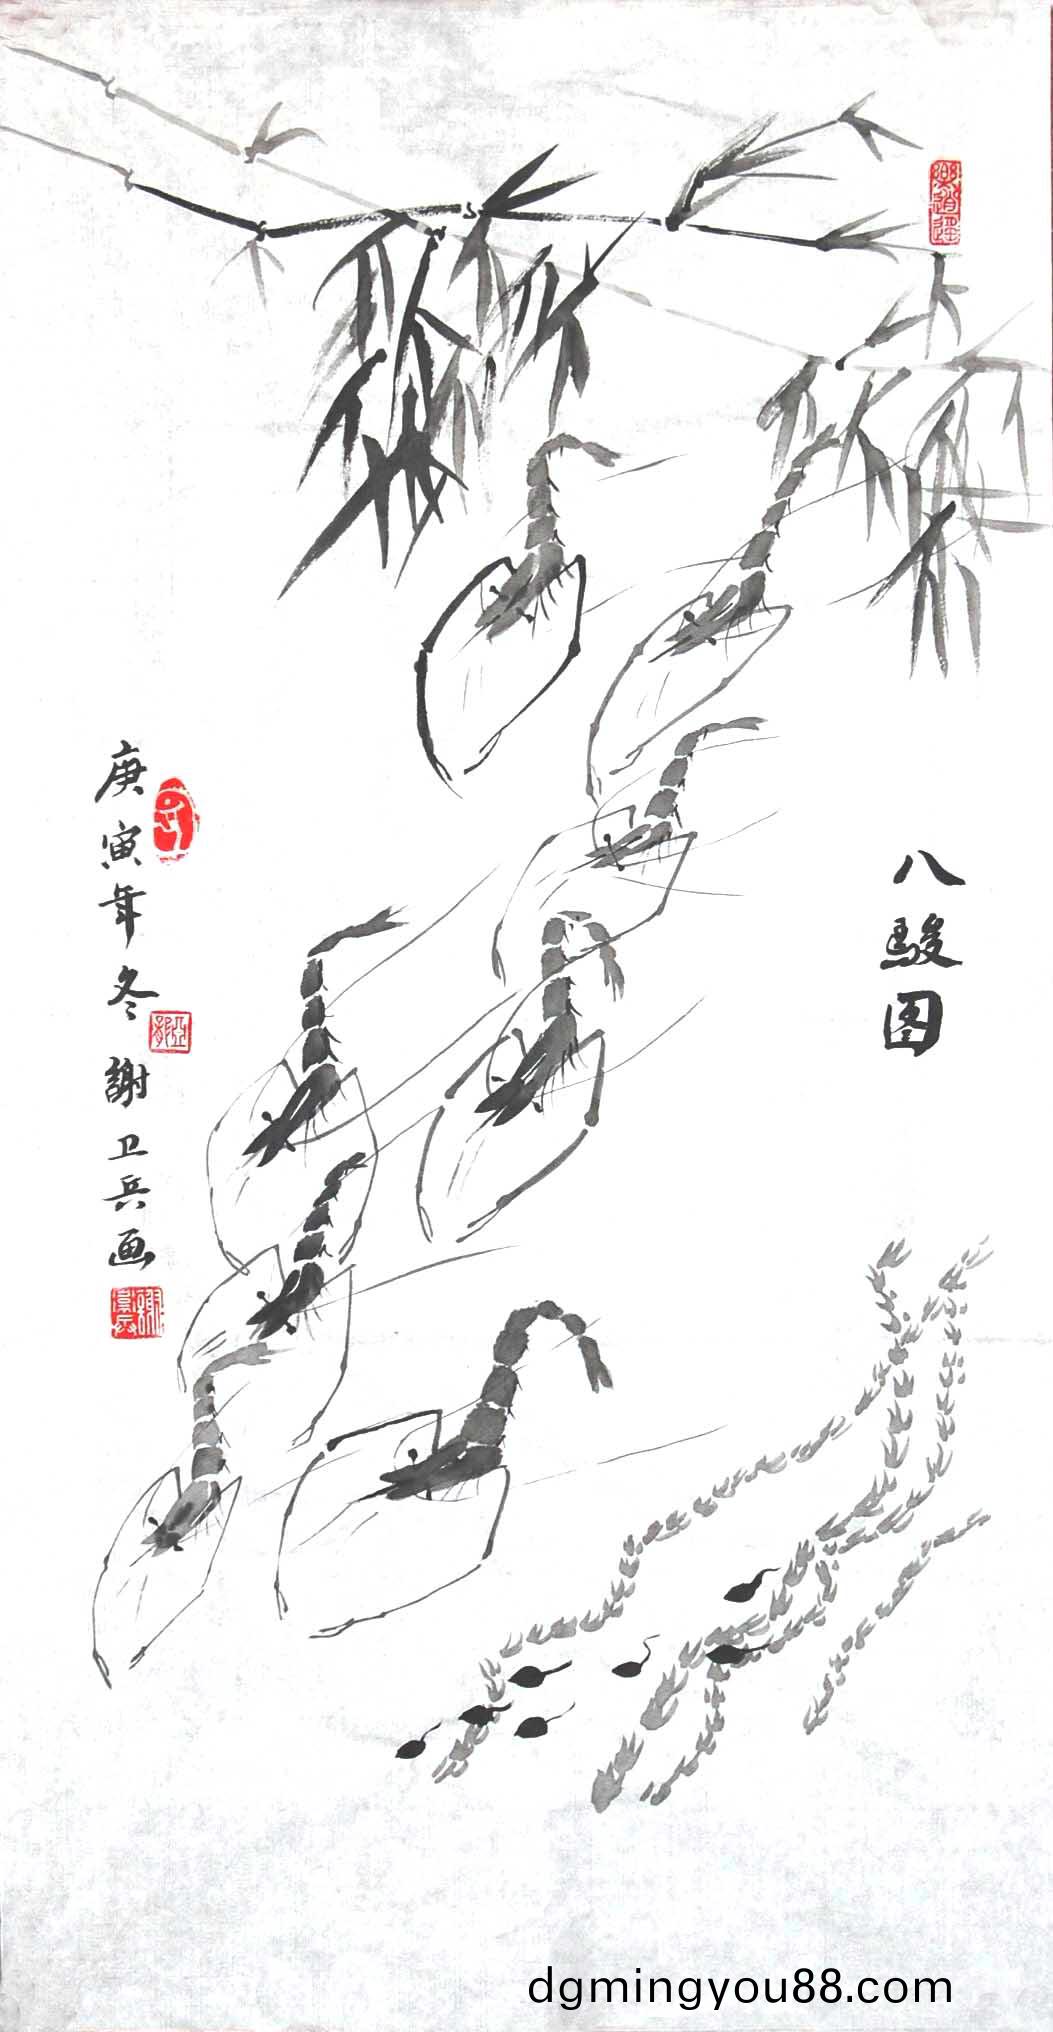 八駿图
庚寅年冬謝卫兵画
dgmingyou88.com